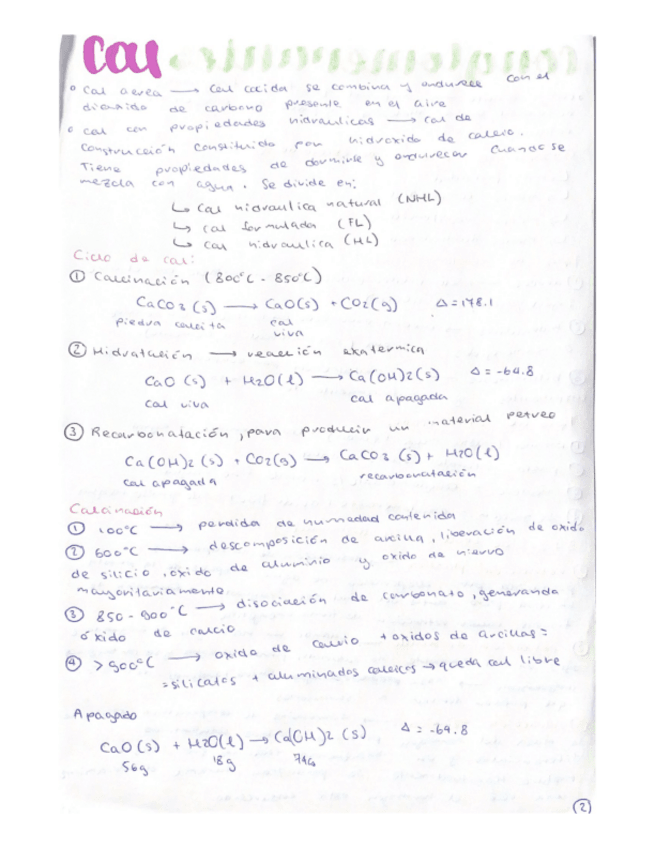 Cal
o Cal aerea → Cal cocida se combina y endurece con el
dioxido de carbono presente en el aire
o cal con propiedades hidraulicas → cal de
Construcción Constituida por hidroxido de calcio.
Tiene propiedades de dormirse y endurecer cuando se
mezcla con agua. Se divide en:
↳ Cal hidraulica natural (NHL)
↳ cal formulada (FL)
↳ cal hidraulica (HL)
Ciclo de cal:
① Calcinación (800°C - 850°C)
CaCO3 (s) → CaO(s) + CO2(g) Δ=178.1
piedra calcita cal
viva
② Hidratación → reacción exotermica
CaO (s) + H2O(l) → Ca(OH)2(s) Δ = -64.8
cal viva cal apagada
③ Recarbonatación, para producir un material petreo
Ca(OH)2 (s) + CO2(g) → CaCO3 (s) + H2O(l)
cal apagada recarbonatación
Calcinación
① 100°C → perdida de humedad contenida
② 600°C → descomposición de arcilla, liberación de oxido
de silicio, oxido de aluminio y oxido de hierro
mayoritariamente
③ 850-900°C → disociación de carbonato, generando
óxido de calcio
④ >900°C → oxido de calcio + oxidos de arcillas=
=silicatos + aluminados calcicos → queda cal libre
Apagado
CaO(s) + H2O(l) → Ca(OH)2 (s) Δ = -64.8
56g 18g 74g
②